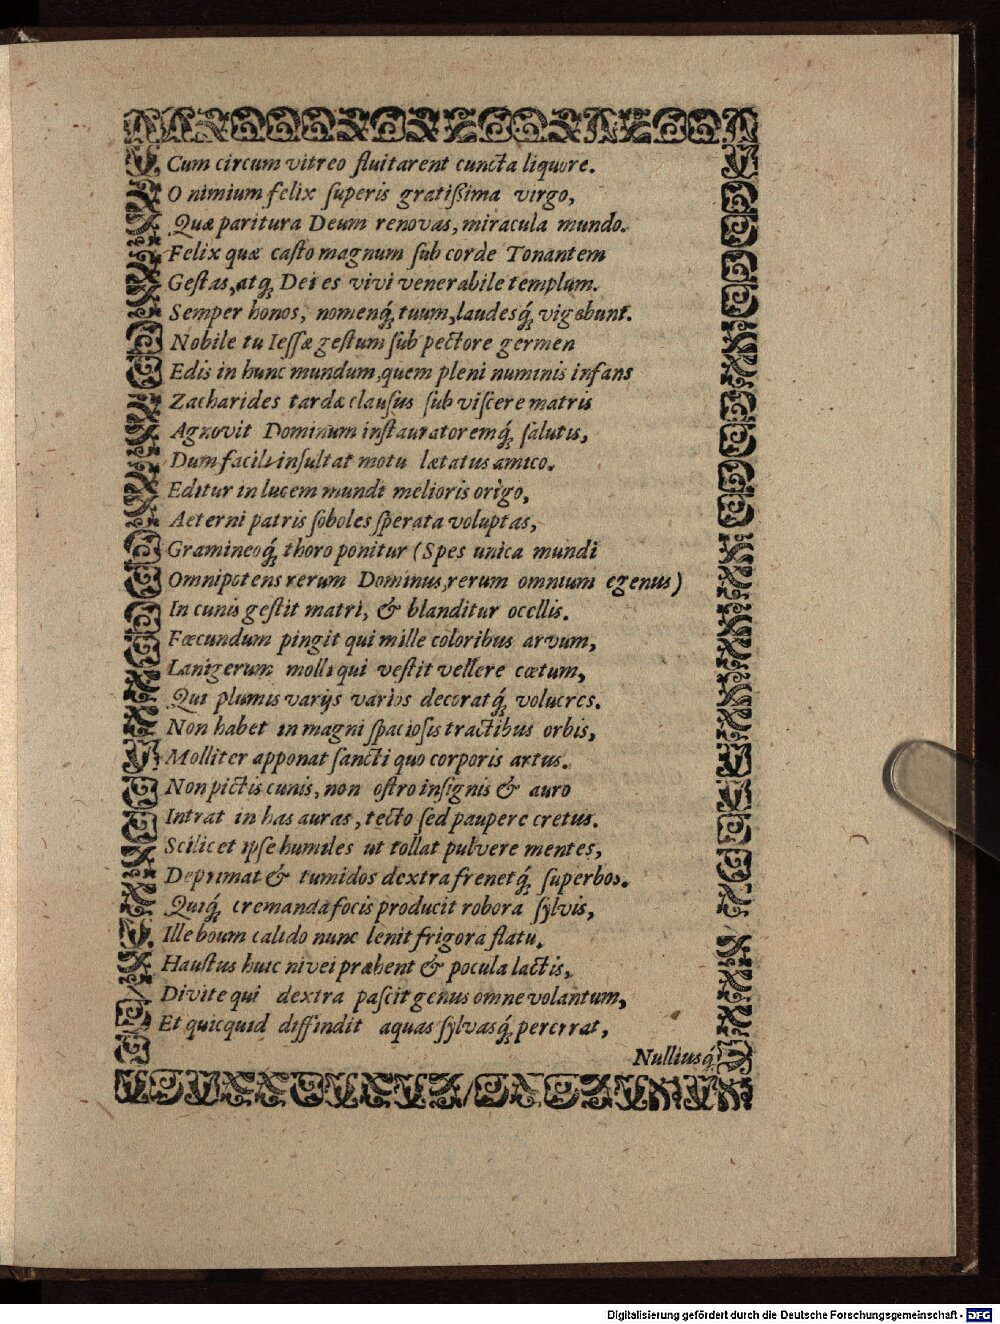 Cum circum vitreo fluitarent cuncta liquore.
O nimium felix ſuperis gratiſsima virgo,
Quæ paritura Deum renovas, miracula mundo.
Felix quæ caſto magnum ſub corde Tonantem
Geſtas, atq́; Dei es vivi venerabile templum.
Semper honos, nomenq́; tuum, laudesq́; vigebunt.
Nobile tu Ieſſæ geſtum ſub pectore germen
Edis in hunc mundum, quem pleni numinis infans
Zacharides tardæ clauſus ſub viſcere matris
Agnovit Dominum inſtauratoremq́; ſalutis,
Dum facili inſultat motu lætatus amico.
Editur in lucem mundi melioris origo,
Aeterni patris ſoboles ſperata voluptas,
Gramineoq́; thoro ponitur (Spes unica mundi
Omnipotens rerum Dominus, rerum omnium egenus)
In cunis geſtit matri, & blanditur ocellis.
Fœcundum pingit qui mille coloribus arvum,
Lanigerum molli qui veſtit vellere cœtum,
Qui plumis varijs varios decoratq́; volucres.
Non habet in magni ſpacioſis tractibus orbis,
Molliter apponat ſancti quo corporis artus.
Non pictis cunis, non oſtro inſignis & auro
Intrat in has auras, tecto ſed paupere cretus.
Scilicet ipſe humiles ut tollat pulvere mentes,
Deprimat & tumidos dextra frenetq́; ſuperbos.
Quiq́; cremanda focis producit robora ſylvis,
Ille boum calido nunc lenit frigora flatu.
Hauſtus huic nivei præbent & pocula lactis,
Divite qui dextra paſcit genus omne volantum,
Et quicquid diffindit aquas ſylvasq́; pererrat,
Nulliusq́;
Digitalisierung gefördert durch die Deutsche Forschungsgemeinschaft - DFG